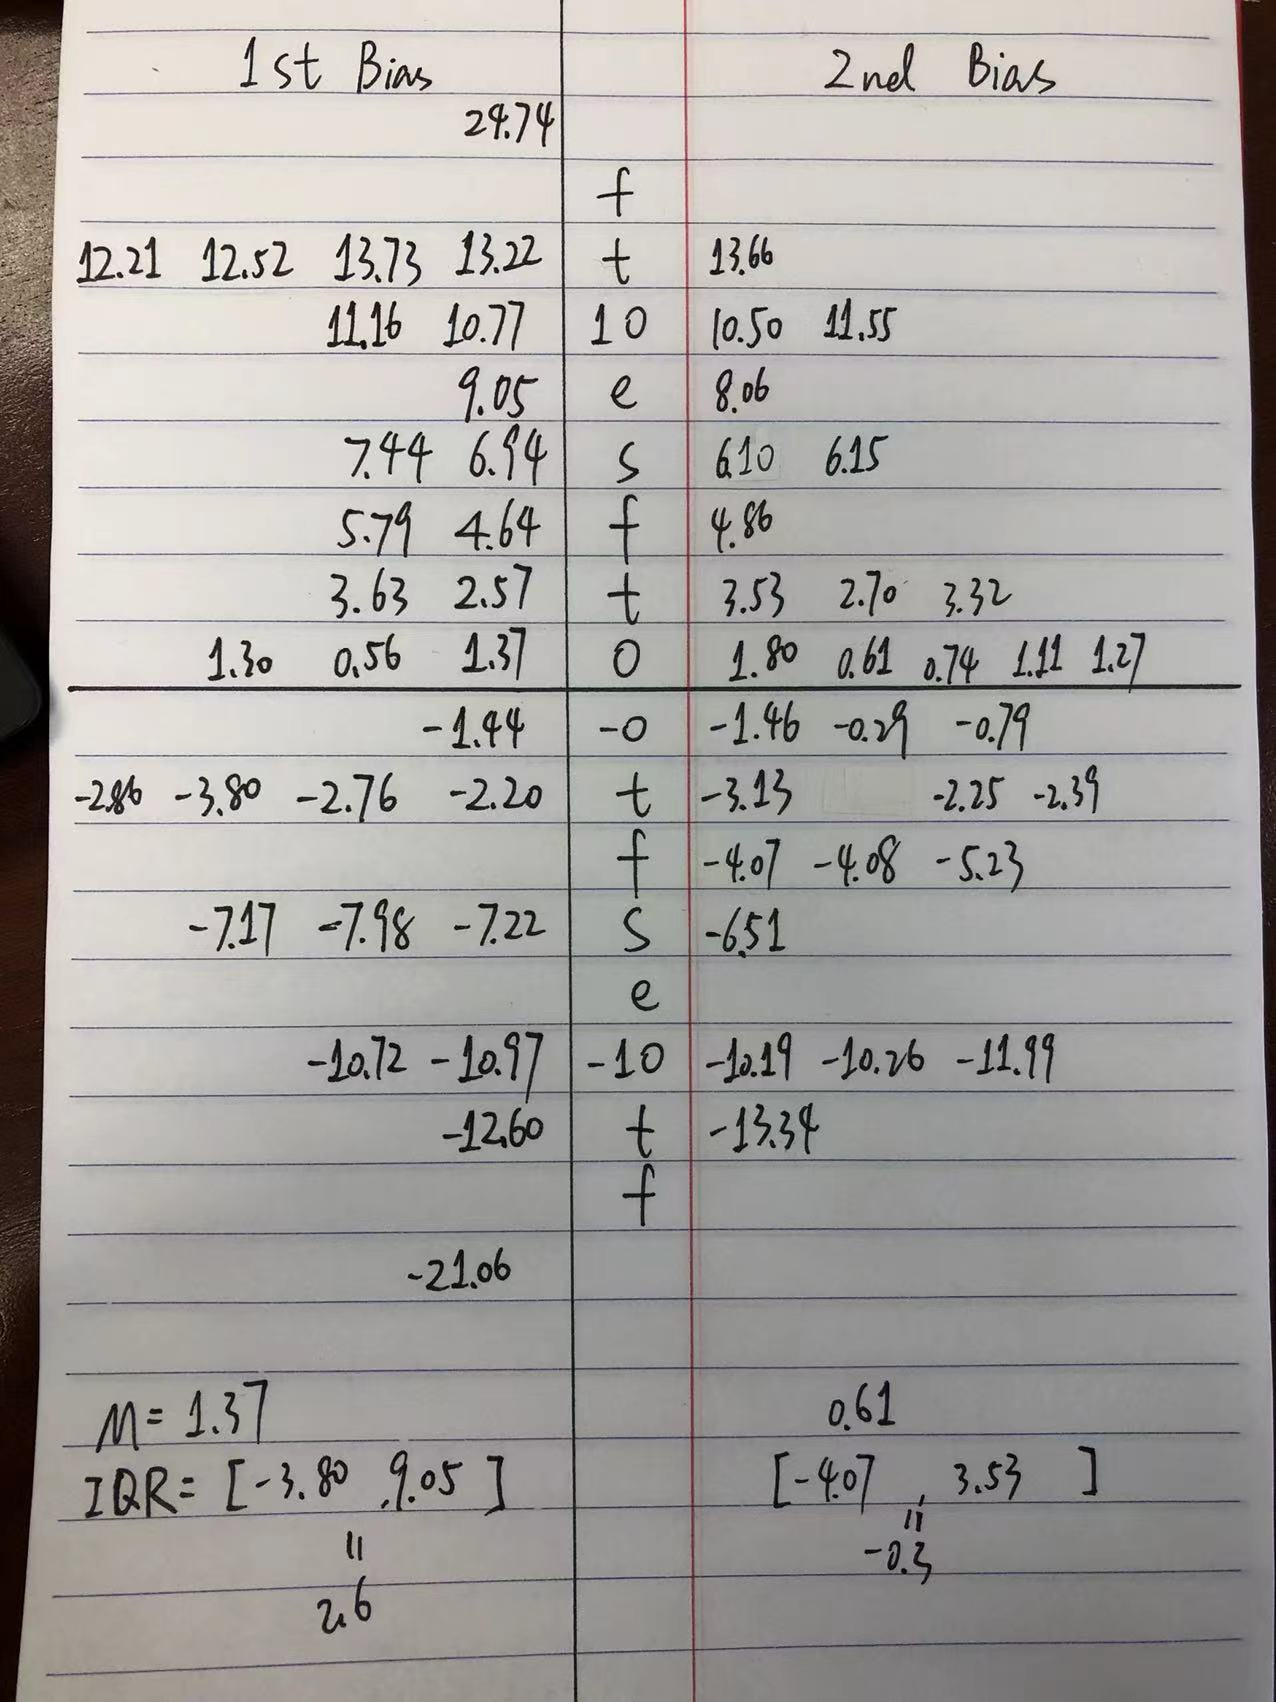 1st Bias 2nd Bias
24.74
f
12.21 12.52 13.73 13.22 t 13.66
11.16 10.77 10 10.50 11.55
9.05 e 8.06
7.44 6.94 s 6.10 6.15
5.79 4.64 f 4.86
3.63 2.57 t 3.53 2.70 3.32
1.30 0.56 1.37 0 1.80 0.61 0.74 1.11 1.27
-1.44 -0 -1.46 -0.29 -0.79
-2.86 -3.80 -2.76 -2.20 t -3.13 -2.25 -2.39
f -4.07 -4.08 -5.23
-7.17 -7.98 -7.22 s -6.51
e
-10.72 -10.97 -10 -10.19 -10.26 -11.99
-12.60 t -13.34
f
-21.06
M = 1.37 0.61
IQR = [-3.80, 9.05] [-4.07, 3.53]
=
=
2.6 -0.3